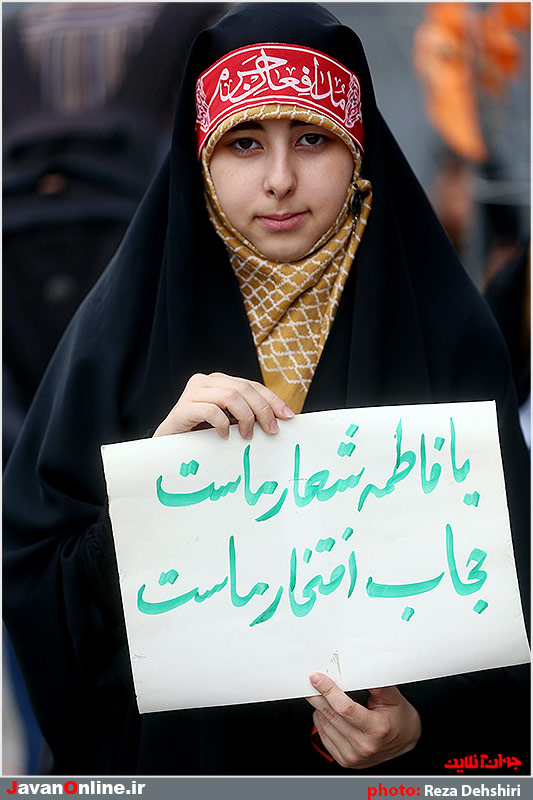 مدافعان حرم
یا فاطمه شعار ماست
حجاب افتخار ماست
جوان آنلاین
JavanOnline.ir
photo: Reza Dehshiri